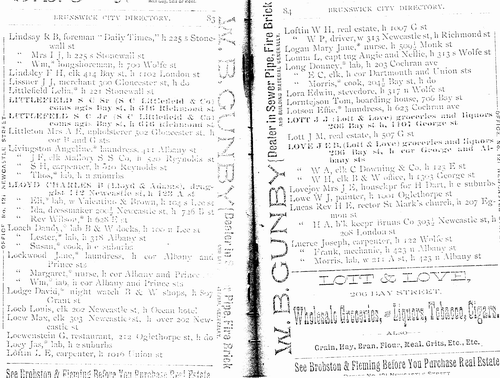 BRUNSWICK CITY DIRECTORY. 83
Lindsay R B, foreman "Daily Times," h 225 s Stonewall st
" Mrs I J, h 225 s Stonewall st
" Wm, longshoreman, h 700 Wolfe st
Lindsley F H, clk 414 Bay st, h 1102 London st
Lissner J J, merchant 300 Gloucester st, h do
Littlefield Lelia," h 221 Albany st
LITTLEFIELD S C Sr (S C Littlefield &
h 616 Richmond st
LITTLEFIELD S C Jr (S C Littlefield &
h 616 Richmond st
Littleton Mrs A E, upholsterer 302 Gloucester st, h cor F and G sts
Livingston Angeline," laundress, 411 Albany st
" J P, clk Mallory S S Co, h 520 Reynolds st
" S H, carpenter, h 520 Reynolds st
" Thos," lab, h n suburbs
LLOYD CHARLES B (Lloyd & Adams), druggist 212 Newcastle st, h 128 A st
" Eli," lab, w Valentine & Brown, h 104 s Lee st
" Ida, dressmaker 202½ Newcastle st, h 726 B st
" Rev Wilson," h 808 E st
Loach Dandy," lab B & W docks, h 100 s Lee st
" Lester," lab, h 315 Albany st
" Susan," cook, h e suburbs
Lockwood Jane," laundress, h cor Albany and Prince sts
" Margaret," nurse, h cor Albany and Prince sts
" Wm," lab, h cor Albany and Prince sts
Lodge David," night watch B & W shops, h 807 Grant st
Loeb Louis, clk 202 Newcastle st, h Ocean hotel
Loew Max, clk 303 Newcastle st, h over 202 Newcastle st
Loewenstein G, restaurant, 212 Oglethorpe st, h do
Loey Jas," lab, h n suburbs
Loftin L E, carpenter, h 1010 Union st
See Brobston & Fleming Before You Purchase Real Estate
W. B. GUNBY
(Dealer in
Pipe, Fire Brick
84 BRUNSWICK CITY DIRECTORY.
Loftin W H, real estate, h 1007 G st
" W P, driver, w 313 Newcastle st, h Richmond st
Logan Mary Jane," nurse, h 509½ Monk st
Lomm L, capt tug Angie and Nellie, h 313 s Wolfe st
Long Donny," lab, h 203 Cochran ave
" E C, clk, h cor Dartmouth and Union sts
" Morris," cook, 203½ Bay st, h do
Lora Edwin, stevedore, h 317 n Wolfe st
Lorntgison Tom, boarding house, 706 Bay st
Lotson Effie," laundress, h 623 Cochran ave
LOTT J J (Lott & Love) groceries and liquors 206 Bay st, h 1107 George st
Lott J M, real estate, h 307 G st
LOVE J E R, (Lott & Love) groceries and liquors 206 Bay st, h cor George and Albany sts
" W A, clk C Downing & Co, h 123 E st
" W H, clk B & W office, h 1213 George st
Lovejoy Mrs J E, housekpr for H Dart, h e suburbs
Lowe W J, painter, h 1001 Oglethorpe st
Lucas Rev H E, rector St Mark's church, h 207 Egmont st
" H A, b'k keepr Bruns Co 303½ Newcastle st, h 208 London st
Lucree Joseph, carpenter, h 122 Wolfe st
" Frank, mechanic, h 223 n Albany st
" Morris, lab, w 211 A st, h 123 n Albany st
LOTT & LOVE,
206 BAY STREET.
Wholesale Groceries, and Liquors, Tobacco, Cigars.
ALSO
Grain, Hay, Bran, Flour, Real, Grits, Etc., Etc.
See Brobston & Fleming Before You Purchase Real Estate
W. B. GUNBY
(Dealer in Sewer Pipe, Fire Brick